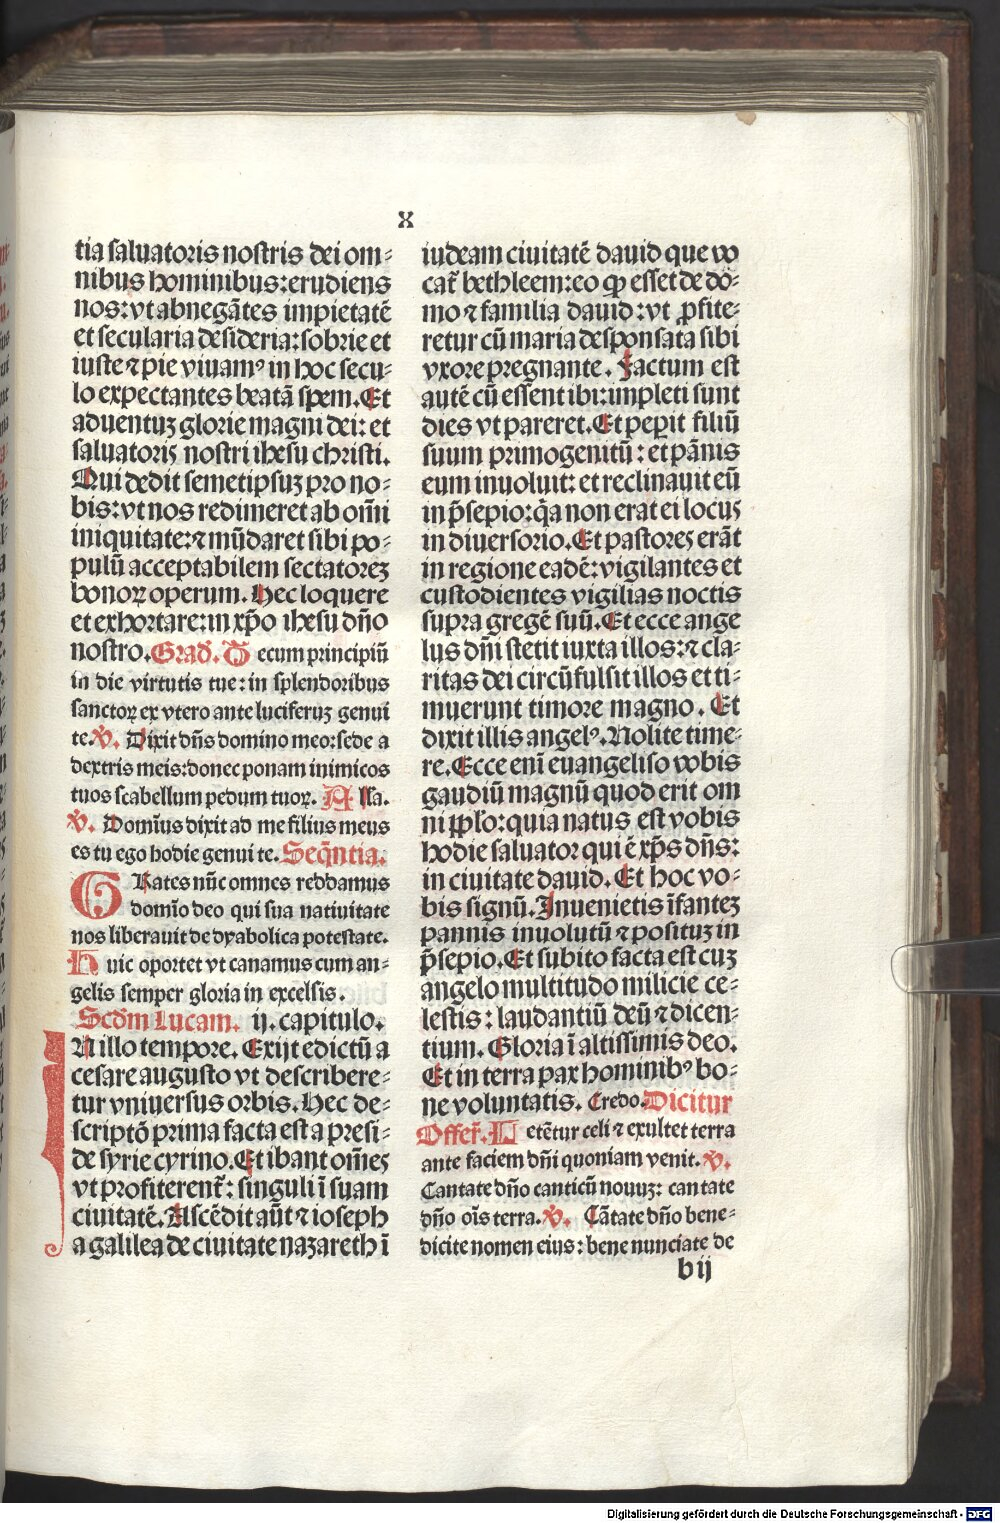 X
tia saluatoris nostris dei om⸗
nibus hominibus: erudiens
nos: vt abnegātes impietatē
et secularia desideria: sobrie et
iuste ⁊ pie viuamꝰ in hoc secu⸗
lo expectantes beatā spem. Et
aduentuʒ glorie magni dei: et
saluatoris nostri ihesu christi.
Qui dedit semetipsuʒ pro no⸗
bis: vt nos redimeret ab om̄i
iniquitate: ⁊ mūdaret sibi po⸗
pulū acceptabilem sectatoreʒ
bonoꝝ operum. Hec loquere
et exhortare: in xp̄o ihesu dn̄o
nostro. Grad̄. Tecum principiū
in die virtutis tue: in splendoribus
sanctoꝝ ex vtero ante luciferuʒ genui
te. V̇. Dixit dn̄s domino meo: sede a
dextris meis: donec ponam inimicos
tuos scabellum pedum tuoꝝ. Alła.
V̇. Domīus dixit ad me filius meus
es tu ego hodie genui te. Seq̄ntia.
GRates nūc omnes reddamus
domīo deo qui sua natiuitate
nos liberauit de dyabolica potestate.
Huic oportet vt canamus cum an⸗
gelis semper gloria in excelsis.
Scdm̄ Lucam. ij. capitulo.
IN illo tempore. Exijt edictū a
cesare augusto vt describere⸗
tur vniuersus orbis. Hec de⸗
scriptō prima facta est a presi⸗
de syrie cyrino. Et ibant om̄es
vt profiterent᷑: singuli ī suam
ciuitatē. Ascēdit aūt ⁊ ioseph
a galilea de ciuitate nazareth ī
iudeam ciuitatē dauid que vo
cat᷑ bethleem: eo ꝙ esset de dō⸗
mo ⁊ familia dauid: vt ꝓfite⸗
retur cū maria desponsata sibi
vxore pregnante. Factum est
autē cū essent ibi: impleti sunt
dies vt pareret. Et peꝑit filiū
suum primogenitū: et pānis
eum inuoluit: et reclinauit eū
in p̄sepio: q̄a non erat ei locuʒ
in diuersorio. Et pastores erāt
in regione eadē: vigilantes et
custodientes vigilias noctis
supra gregē suū. Et ecce ange
lus dn̄i stetit iuxta illos: ⁊ cla⸗
ritas dei circūfulsit illos et ti⸗
muerunt timore magno. Et
dixit illis angelꝰ. Nolite time⸗
re. Ecce eni̅ euangeliso vobis
gaudiū magnū quod erit om
ni pplo: quia natus est vobis
hodie saluator qui ē xp̄s dn̄s:
in ciuitate dauid. Et hoc vo⸗
bis signū. Inuenietis īfanteʒ
pannis inuolutū ⁊ posituʒ in
p̄sepio. Et subito facta est cuʒ
angelo multitudo milicie ce⸗
lestis: laudantiū deū ⁊ dicen⸗
tium. Gloria ī altissimis deo.
Et in terra pax hominibꝰ bo⸗
ne voluntatis. Credo. Dicitur
Offer̄. Letētur celi ⁊ exultet terra
ante faciem dn̄i quoniam venit. V̇.
Cantate dn̄o canticū nouuʒ: cantate
dn̄o oīs terra. V̇. Cātate dn̄o bene⸗
dicite nomen eius: bene nunciate de
bij
Digitalisierung gefördert durch die Deutsche Forschungsgemeinschaft - DFG